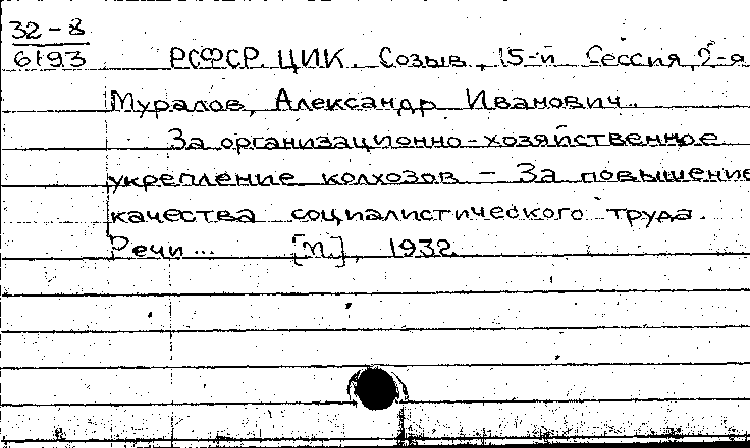 32-8
6193
РСФСР. ЦИК. Созыв, 15-й Сессия, 2-я
Муралов, Александр Иванович.
За организационно-хозяйственное
укрепление колхозов – За повышение
качества социалистического труда.
Речи... [М.], 1932.